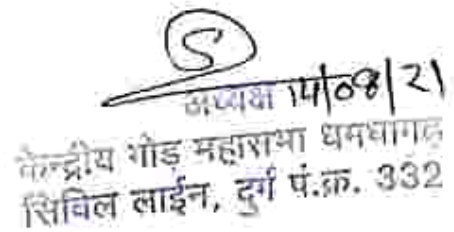 अध्यक्ष 14/08/21
केन्द्रीय गोंड़ महासभा धमधागढ़
सिविल लाईन, दुर्ग पं.क्र. 332